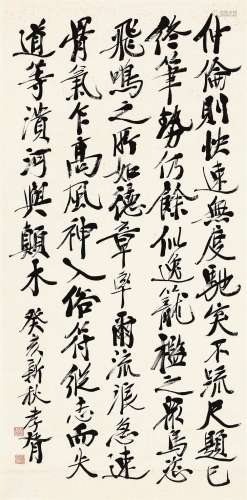 仲倫則快速無度馳突不疏尺題已
終筆勢仍餘似逸籠檻之羇鳥恣
飛鳴之所如德章率爾流浪急速
骨氣乍高風神入俗符縱志而失
道等潰河與顛木
癸亥新秋孝胥